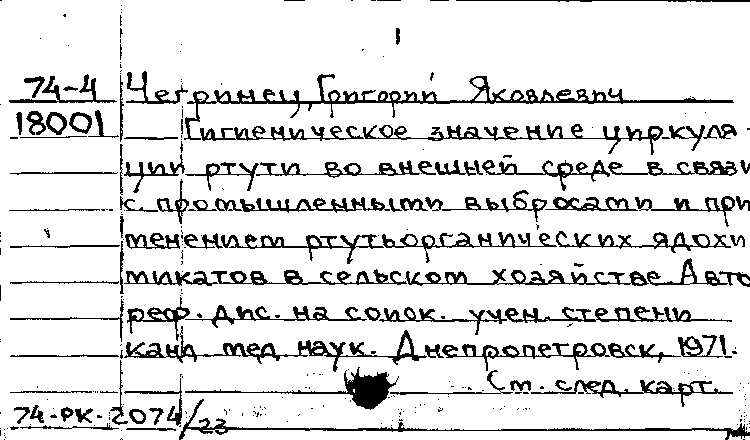 1
74-4 Чегринец, Григорий Яковлевич
18001 Гигиеническое значение циркуля-
ции ртути во внешней среде в связи
с промышленными выбросами и при
менением ртутьорганических ядохи
микатов в сельском хозяйстве. Авто
реф. дис. на соиск. учен. степени
канд. мед. наук. Днепропетровск, 1971.
См. след. карт.
74-РК-2074/23